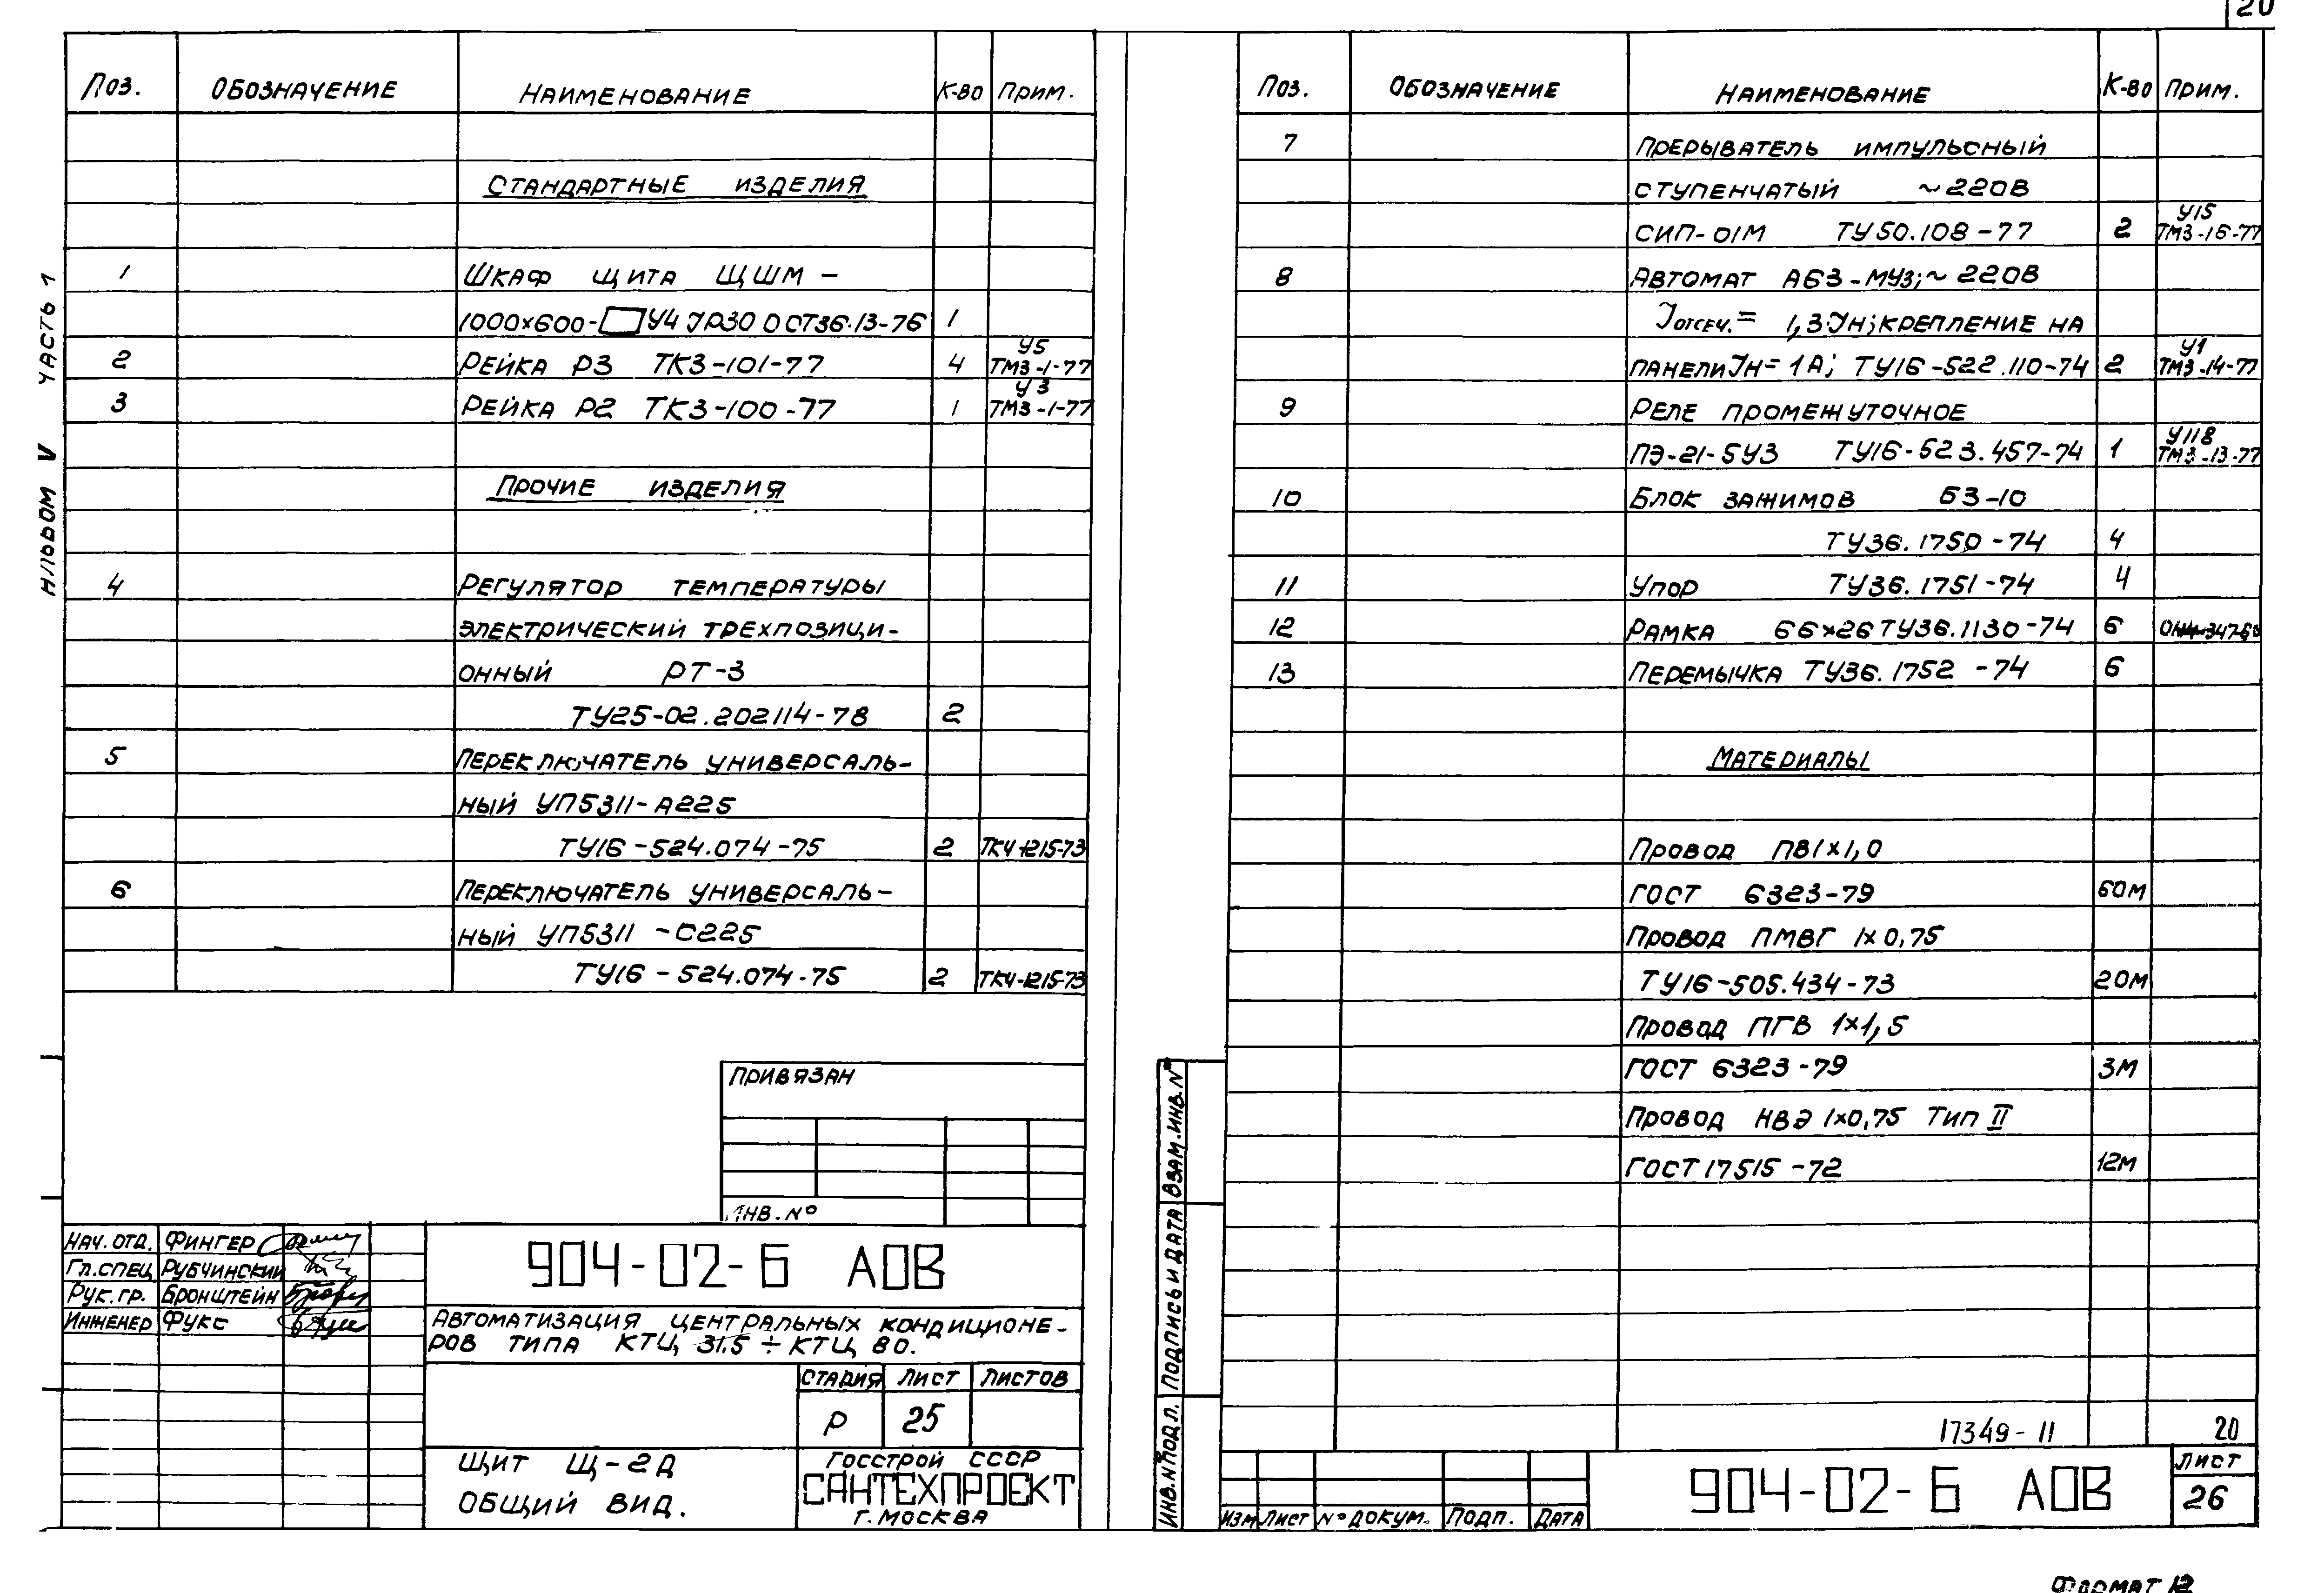 20
Альбом V часть 1
Поз. Обозначение Наименование К-во Прим.
Стандартные изделия
1 Шкаф щита ЩШМ –
1000х600- У4 IP30 ОСТ36.13-76 1
У5
2 Рейка Р3 ТК3-101-77 4 ТМ3-1-77
У3
3 Рейка Р2 ТК3-100-77 1 ТМ3-1-77
Прочие изделия
4 Регулятор температуры
электрический трехпозици-
онный РТ-3
ТУ25-02.202114-78 2
5 Переключатель универсаль-
ный УП5311-А225
ТУ16-524.074-75 2 ТК4-1215-73
6 Переключатель универсаль-
ный УП5311-С225
ТУ16-524.074-75 2 ТК4-1215-73
Привязан
Инв.№
Нач.отд. Фингер
Гл.спец Рубчинский
Рук.гр. Бронштейн
Инженер Фукс
904-02-6 АОВ
Автоматизация центральных кондиционе-
ров типа КТЦ 31.5 ÷ КТЦ 80.
Стадия Лист Листов
Р 25
Щит Щ-2Д
Общий вид.
Госстрой СССР
САНТЕХПРОЕКТ
г. Москва
Поз. Обозначение Наименование К-во Прим.
7 Прерыватель импульсный
ступенчатый ~220В
У15
СИП-01М ТУ50.108-77 2 ТМ3-16-77
8 Автомат А63-МУ3;~220В
Iотсеч.= 1,3·Iн; крепление на
У1
панели Iн=1А; ТУ16-522.110-74 2 ТМ3-14-77
9 Реле промежуточное
У118
ПЭ-21-5У3 ТУ16-523.457-74 1 ТМ3-13-77
10 Блок зажимов БЗ-10
ТУ36.1750-74 4
11 Упор ТУ36.1751-74 4
12 Рамка 66х26 ТУ36.1130-74 6
13 Перемычка ТУ36.1752-74 6
Материалы
Провод ПВ1х1,0
ГОСТ 6323-79 60м
Провод ПМВГ 1х0,75
ТУ16-505.434-73 20м
Провод ПГВ 1х1,5
ГОСТ 6323-79 3м
Провод НВЭ 1х0,75 Тип II
ГОСТ 17515-72 12м
17349-11 20
Инв.№подл. Подпись и дата Взам.инв.№
Изм Лист №докум. Подп. Дата
904-02-6 АОВ
Лист
26
Формат 12